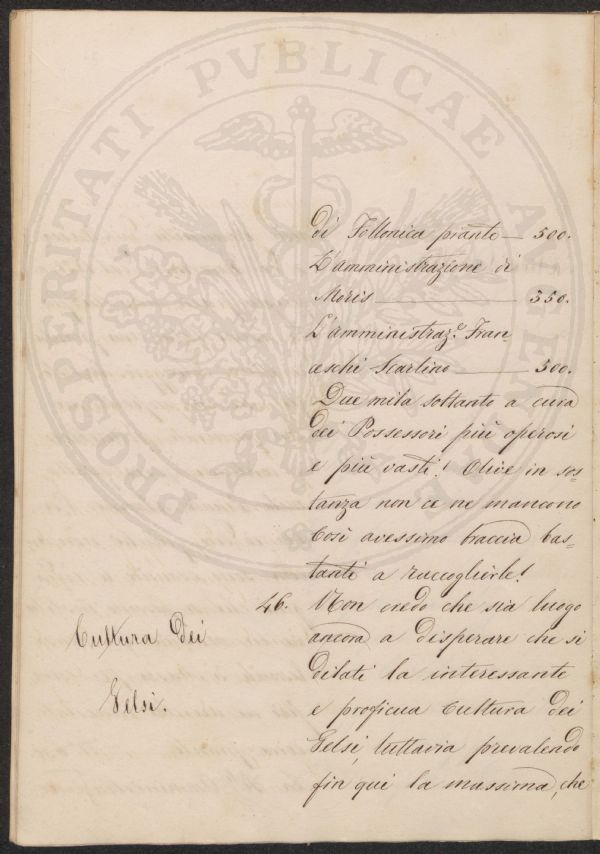 PROSPERITATI PVBLICAE AVGENDAE
di Follonica piante — 500.
L'amministrazione di
Moris — 350.
L'amministraz.e Fran-
ceschi Scarlino — 300.
Due mila soltanto a cura
dei Possessori più operosi
e più vasti! Olive in sos-
tanza non ce ne mancono
Così avessimo braccia bas-
tanti a raccoglierle!
46. Non credo che sia luogo
Cultura dei
ancora a disperare che si
dilati la interessante
Gelsi.
e proficua cultura dei
Gelsi, tuttavia prevalendo
fin qui la massima, che